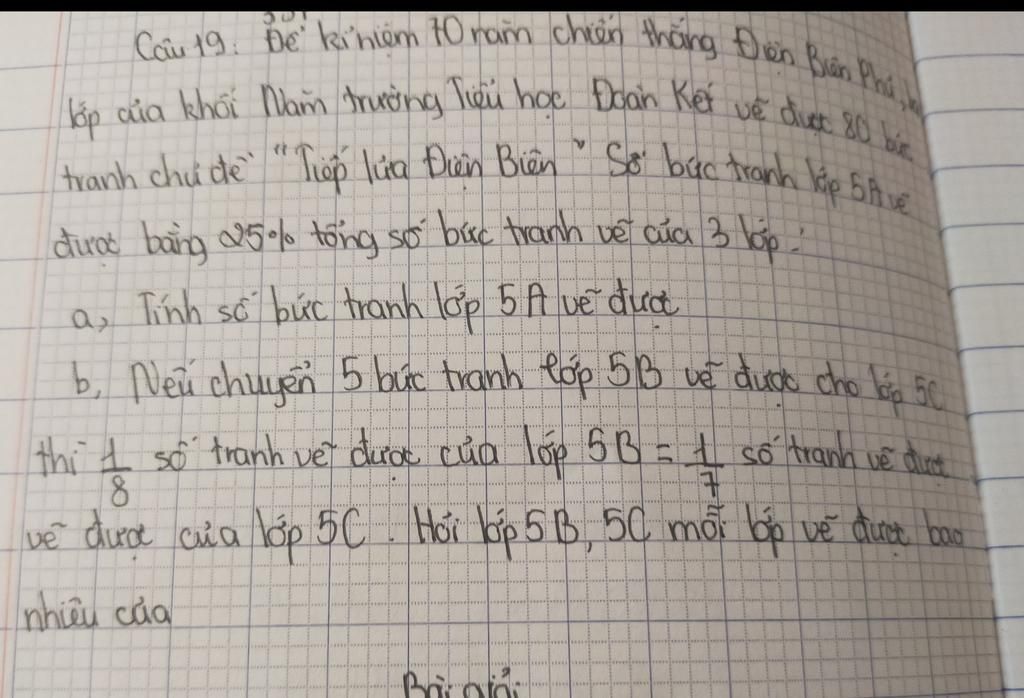 Câu 19. Để kỉ niệm 70 năm chiến thắng Điện Biên Phủ,
lớp của khối Năm trường Tiểu học Đoàn Kết vẽ được 80 bức
tranh chủ đề "Tiếp lửa Điện Biên" Số bức tranh lớp 5A vẽ
được bằng 25% tổng số bức tranh vẽ của 3 lớp.
a, Tính số bức tranh lớp 5A vẽ được
b, Nếu chuyển 5 bức tranh lớp 5B vẽ được cho lớp 5C
thì 1/8 số tranh vẽ được của lớp 5B = 1/7 số tranh vẽ được
vẽ được của lớp 5C. Hỏi lớp 5B, 5C mỗi lớp vẽ được bao
nhiêu của
Bài giải